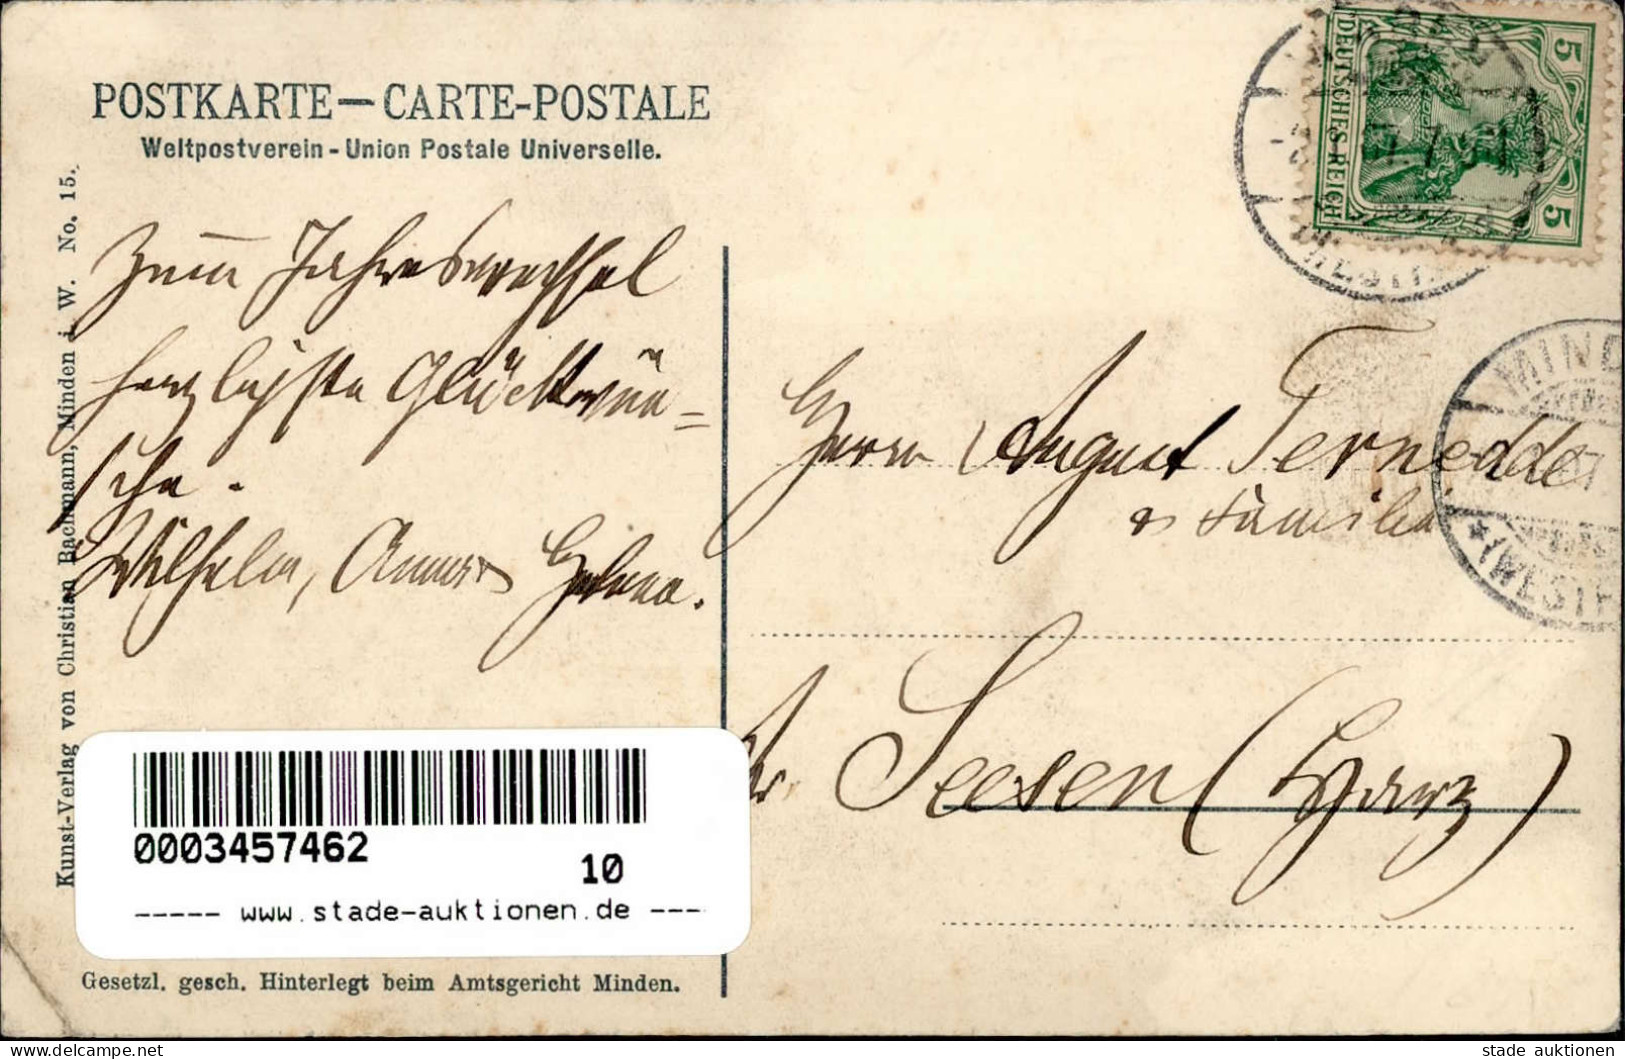 POSTKARTE — CARTE-POSTALE
Weltpostverein - Union Postale Universelle.
Kunst-Verlag von Christian Bachmann, Minden i. W. No. 15.
Zum Jahreswechsel
herzlichste Glückwün=
sche.
Wilhelm, Anna Helene.
DEUTSCHES REICH
5
5
MIND
(WESTF
Herrn August Ternedde
u Familie
Seesen (Harz)
0003457462
10
----- www.stade-auktionen.de ---
Gesetzl. gesch. Hinterlegt beim Amtsgericht Minden.
oldthing.com
stade auktionen